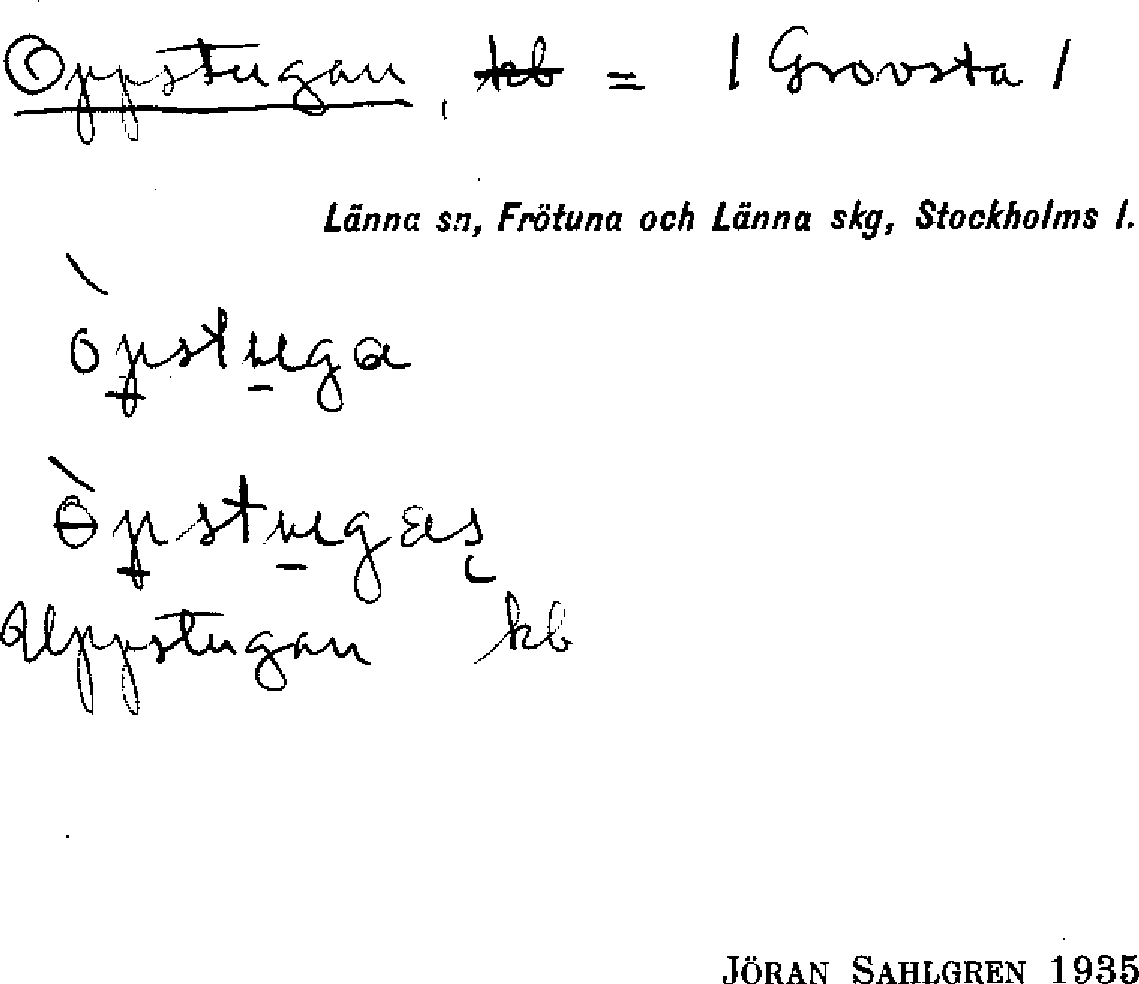 Oppstugan, kb = / Grovsta /
Länna sn, Frötuna och Länna skg, Stockholms l.
òpstuga
ɵ̀pstugas
Uppstugan kb
JÖRAN SAHLGREN 1935